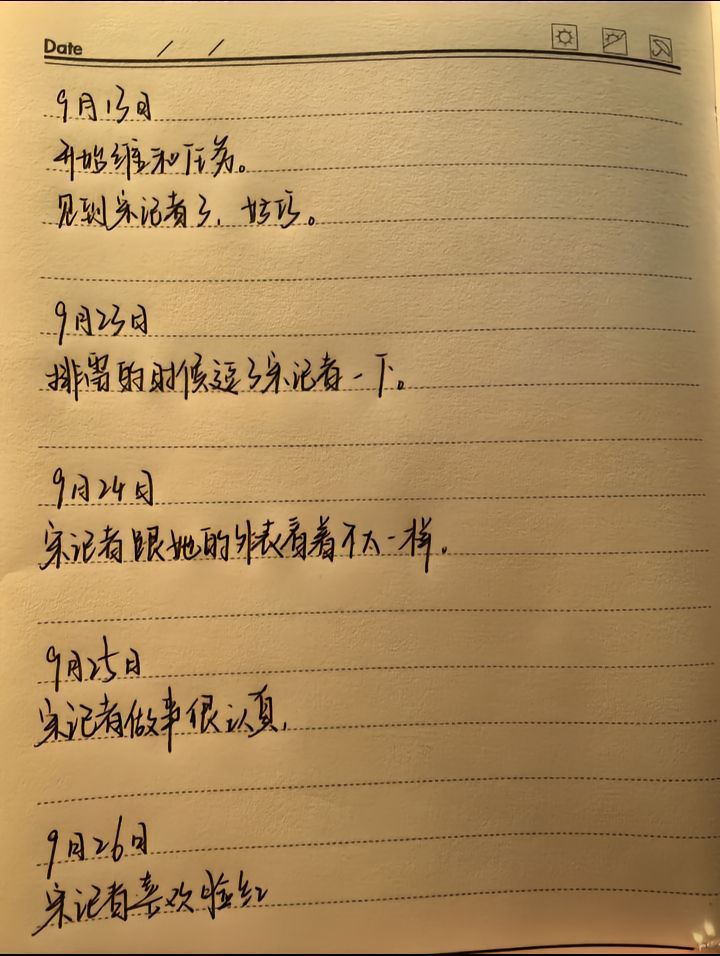 Date / /
9月13日
开始维和任务。
见到宋记者了，好巧。
9月23日
排雷的时候逗了宋记者一下。
9月24日
宋记者跟她的外表看着不太一样。
9月25日
宋记者做事很认真，
9月26日
宋记者喜欢脸红